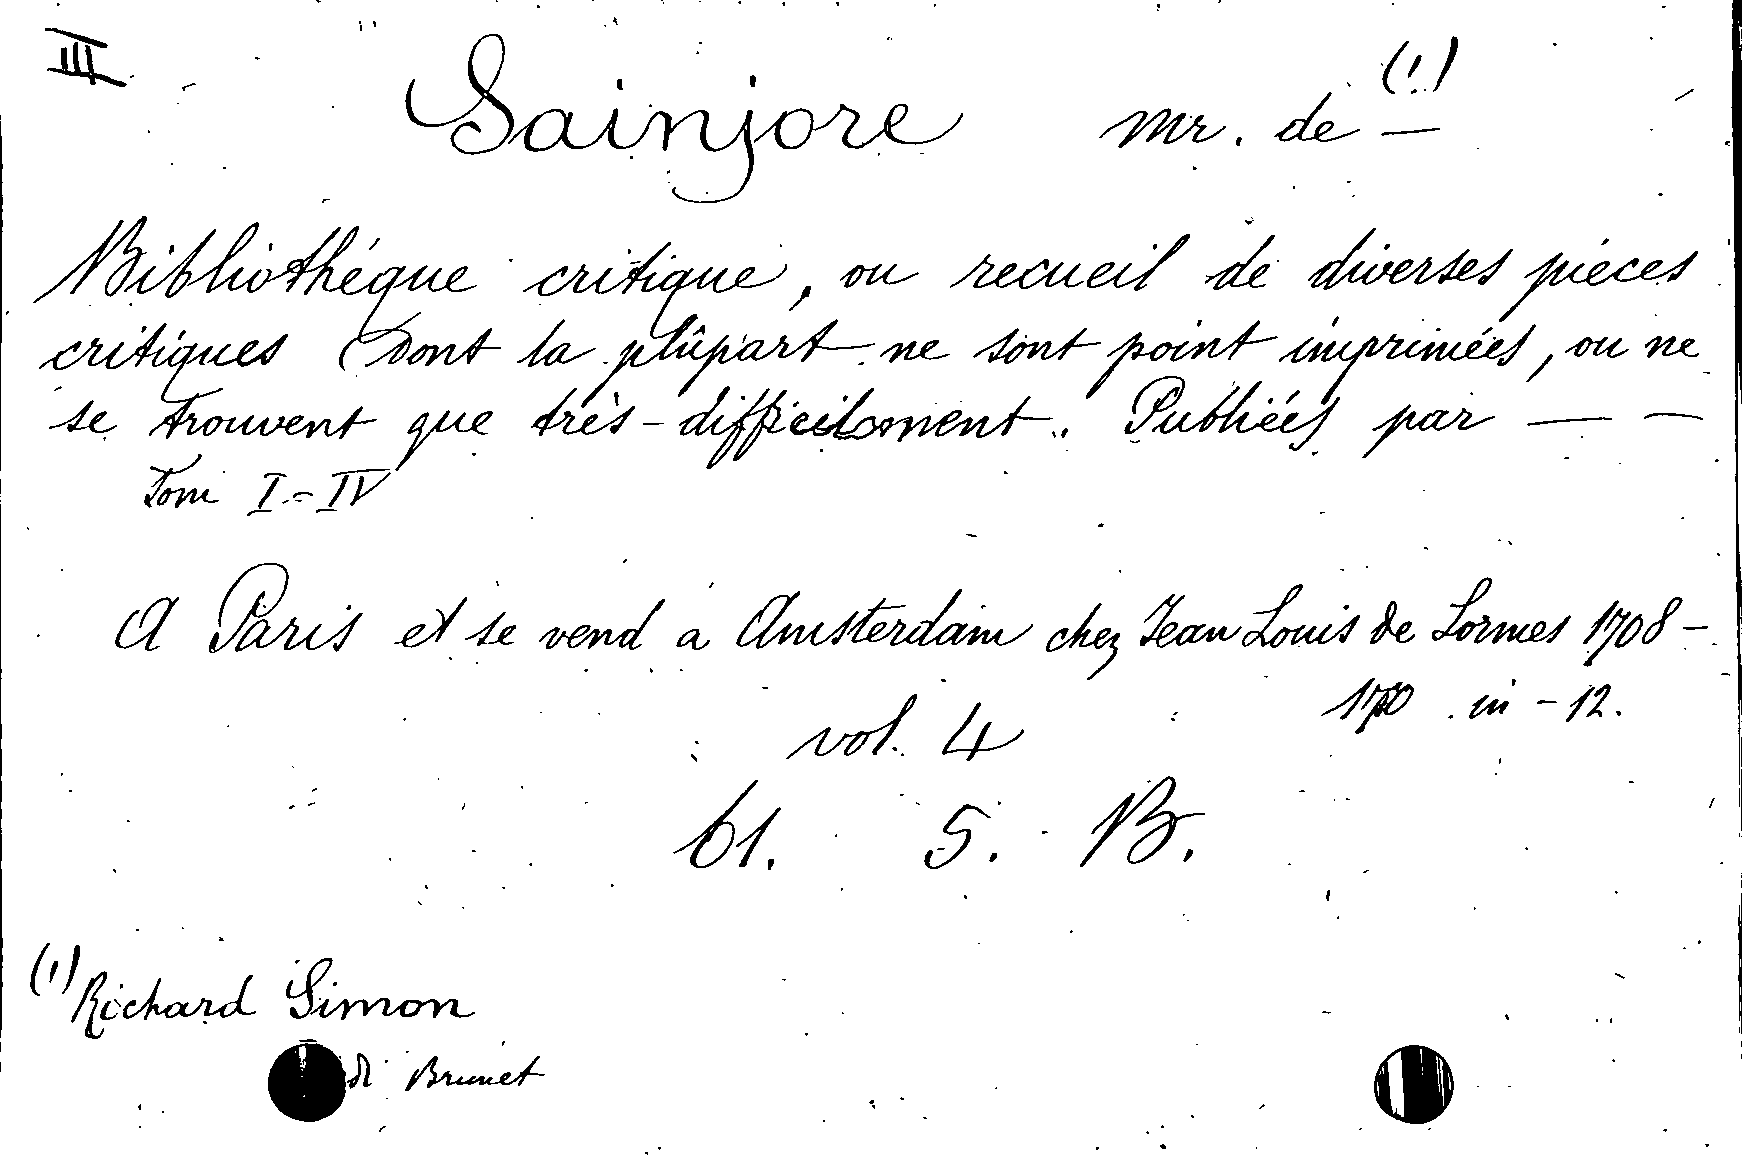 III
Sainjore mr. de — (1)
Bibliothéque critique, ou recueil de diverses piéces
critiques (dont la plûpart ne sont point imprimées, ou ne
se trouvent que très-difficilement. Publiées par — —
Tom I-IV
A Paris et se vend a Amsterdam chez Jean Louis de Lormes 1708-
in-12.
vol. 4
61. 5. B.
(1) Richard Simon
Brunet